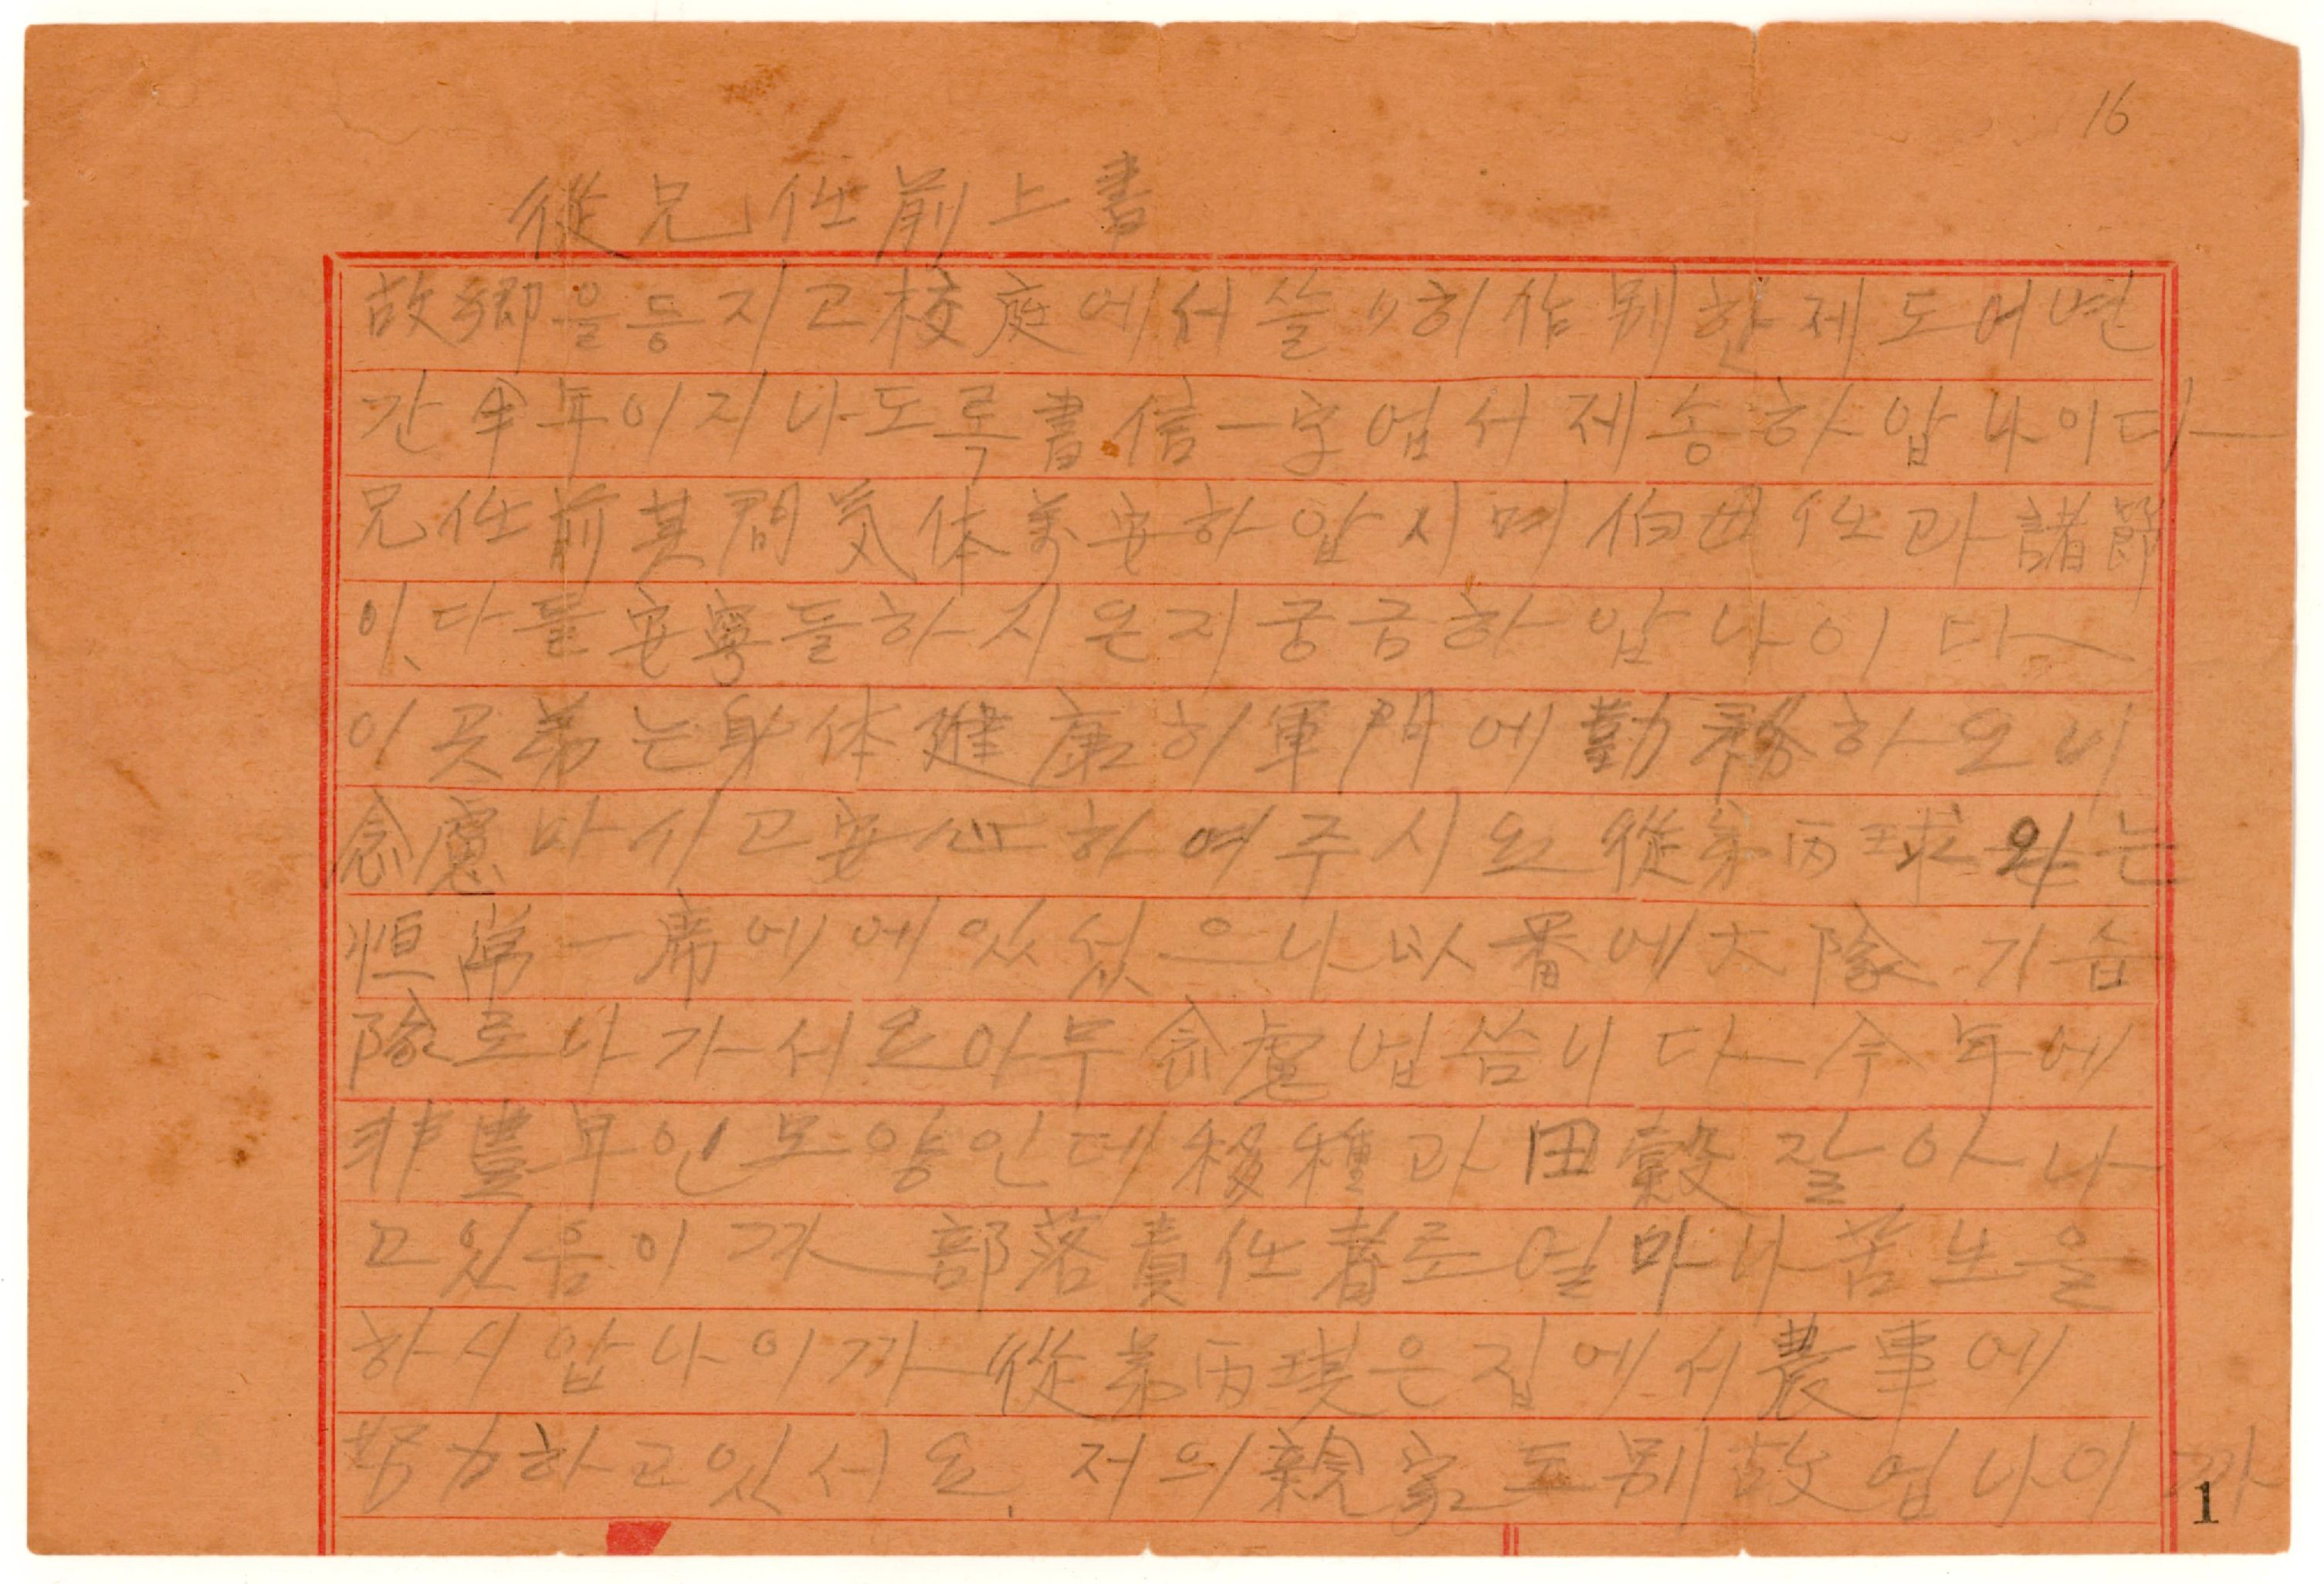 16
從兄任前上書
故鄕을등지고校庭에서쓸〃히作別한제도어면
간半年이지나도록書信一字업서제송하압나이다
兄任前其間気体萬安하압시며伯母任과諸節
이다들安寧들하시은지궁금하압나이다
이곳弟는身体健康히軍門에勤務하오니
念慮마시고安心하여주시요從弟丙球와는
恒常一席에에있섰으나以番에大隊기습
隊로나가서요아무念慮업씀니다今年에
非豊年인모양인데移種과田穀잘아나
고있음이까部落責任者로얼마나苦生을
하시압나이까從弟丙璞은집에서農事에
努力하고있서요저의親家도別故업나이까
1